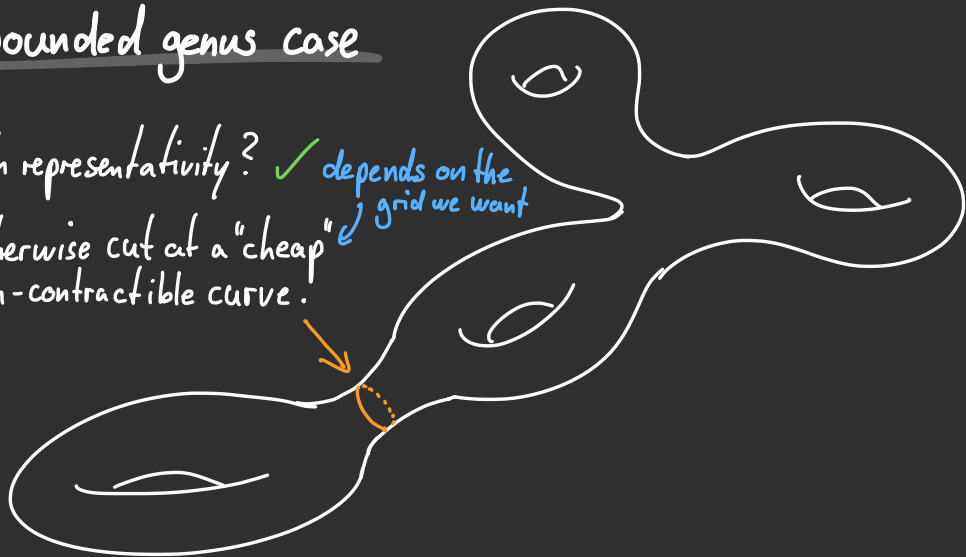 ounded genus case
h representativity? ✓ depends on the
grid we want
herwise cut at a "cheap"
n-contractible curve.